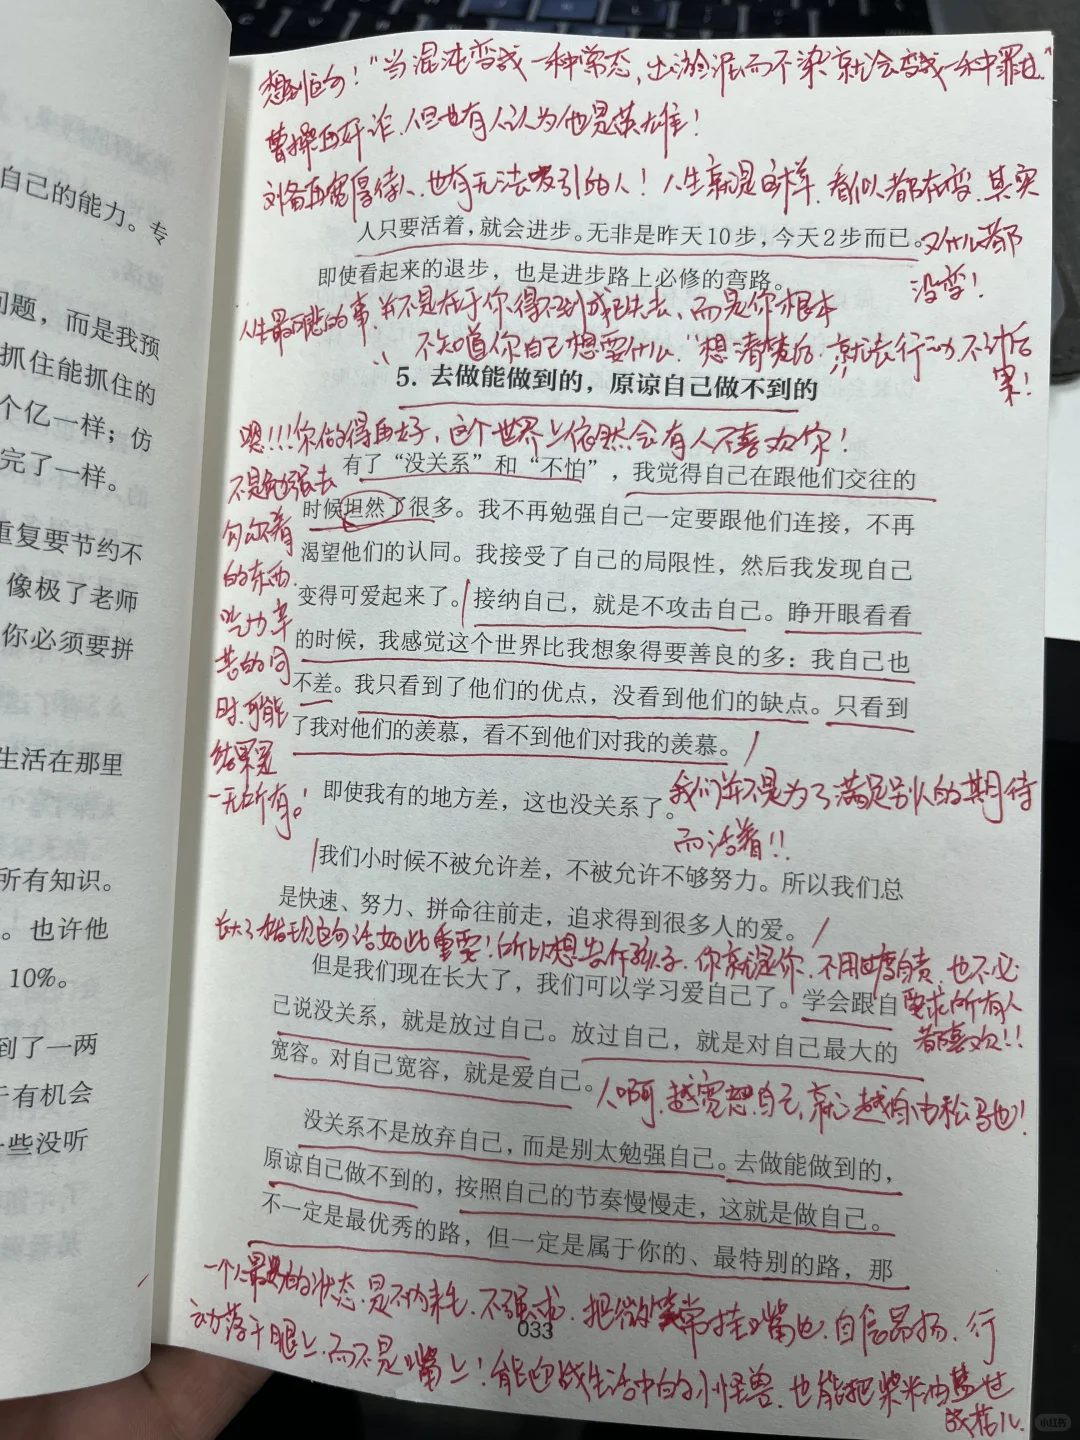 自己的能力。专
问题，而是我预
抓住能抓住的
个亿一样；仿
完了一样。
重复要节约不
像极了老师
你必须要拼
生活在那里
所有知识。
。也许他
10%。
到了一两
于有机会
一些没听
想到一句！"当混沌变成一种常态，出淤泥而不染就会变成一种罪过"
曹操再奸诈、但也有人认为他是英雄！
刘备再宽厚待人、也有无法吸引的人！人生就是这样，看似都在变、其实
又什么都
没变！
人只要活着，就会进步。无非是昨天10步，今天2步而已。
即使看起来的退步，也是进步路上必修的弯路。
人生最可悲的事，并不是在于你得不到或失去、而是你根本
不知道你自己想要什么、"想清楚后，就去行动、不计后
果！
5. 去做能做到的，原谅自己做不到的
嗯!!!你做得再好，这个世界上依然会有人不喜欢你！
不是勉强去
的东西.
吃力辛
苦的同
时、可能
结果是
一无所有。！
有了“没关系”和“不怕”，我觉得自己在跟他们交往的
时候坦然了很多。我不再勉强自己一定要跟他们连接，不再
渴望他们的认同。我接受了自己的局限性，然后我发现自己
变得可爱起来了。接纳自己，就是不攻击自己。睁开眼看看
的时候，我感觉这个世界比我想象得要善良的多：我自己也
不差。我只看到了他们的优点，没看到他们的缺点。只看到
了我对他们的羡慕，看不到他们对我的羡慕。
即使我有的地方差，这也没关系了。
我们并不是为了满足别人的期待
而活着!!
我们小时候不被允许差，不被允许不够努力。所以我们总
是快速、努力、拼命往前走，追求得到很多人的爱。
长大了才发现这句话如此重要！所以想告诉孩子，你就是你、不用过度自责、也不必
要求所有人
都喜欢!!
但是我们现在长大了，我们可以学习爱自己了。学会跟自
己说没关系，就是放过自己。放过自己，就是对自己最大的
宽容。对自己宽容，就是爱自己。
人啊，越宽恕自己、就越自由松弛！
没关系不是放弃自己，而是别太勉强自己。去做能做到的，
原谅自己做不到的，按照自己的节奏慢慢走，这就是做自己。
不一定是最优秀的路，但一定是属于你的、最特别的路，那
一个人最好的状态、是不内耗、不强求、把微笑常挂嘴边、自信昂扬、行
动落于腿上、而不是嘴上！能迎战生活中的小怪兽、也能把柴米油盐过
成花儿.
033
小红书